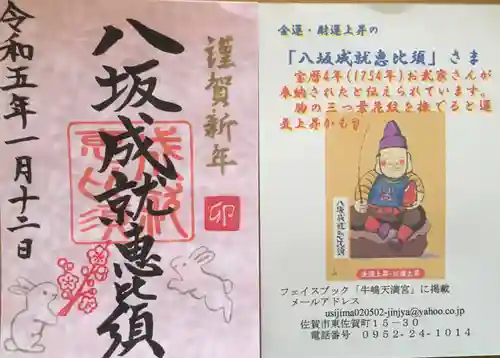 謹賀新年
卯
八坂成就恵比須
令和五年一月十二日
金運・財運上昇の
「八坂成就恵比須」さま
宝暦4年(1754年)お武家さんが
奉納されたと伝えられています。
胸の三つ葉花紋を撫でると運
気上昇かも!
八坂成就恵比須
フェイスブック「牛嶋天満宮」に掲載
メールアドレス
usijima020502-jinjya@yahoo.co.jp
佐賀市東佐賀町15-30
電話番号 0952-24-1014